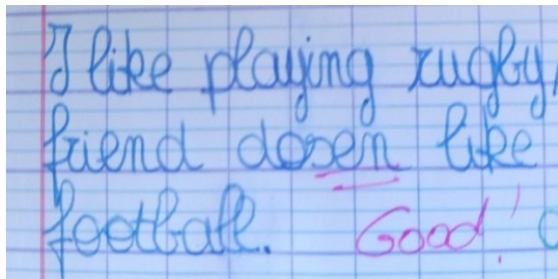 I like playing rugby,
friend dosen like
football. Good!